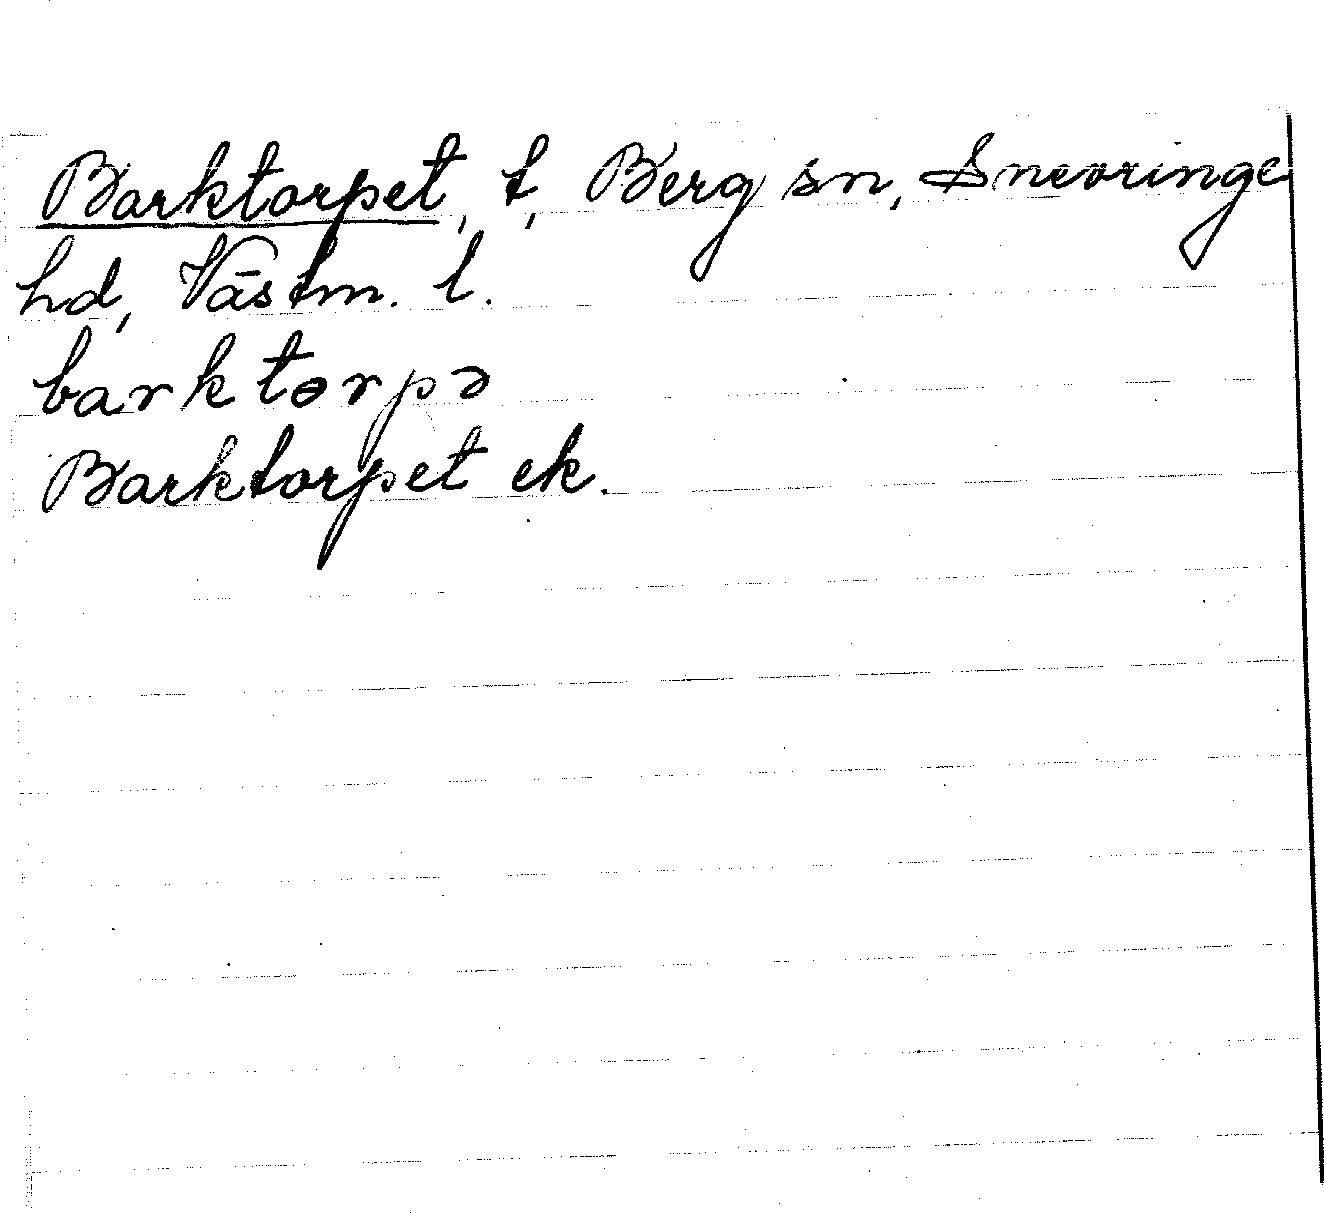 Barktorpet, t, Berg sn, Snevringe
hd, Västm. l.
barktɵrpə
Barktorpet ek.